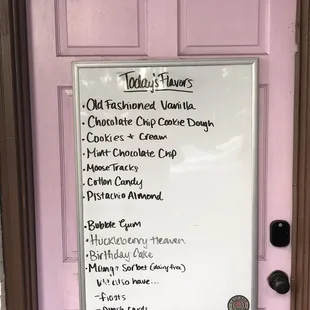 Today's Flavors
• Old Fashioned Vanilla
• Chocolate Chip Cookie Dough
• Cookies + Cream
• Mint Chocolate Chip
• Moose Tracks
• Cotton Candy
• Pistachio Almond
• Bubble Gum
• Huckleberry Heaven
• Birthday Cake
• Mango Sorbet (dairy free)
We also have...
- floats